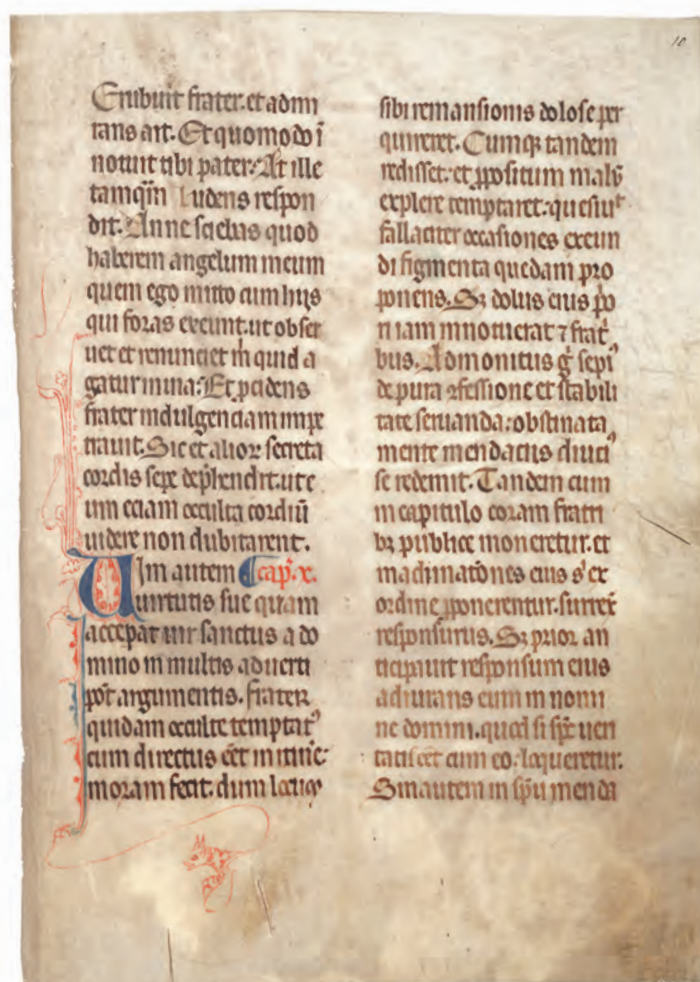 10
Erubuit frater. et admi
rans ait. Et quomodo ī
notuit tibi pater? At ille
tamqm̄ ludens respon
dit. Anne sciebas quod
haberem angelum meum
quem ego mitto cum hiis
qui foras exeunt. ut obser
uet et renunciet m̄ quid a
gatur in uia? Et ꝓcidens
frater indulgenciam impe
trauit. Sic et alioꝝ secreta
cordis sepe dep̄hendit. ut e
um eciam occulta cordiū
uidere non dubitarent.
Uim autem cap̄. x.
uirtutis sue quam
acceperat uir sanctus a do
mino in multis aduerti
pōt argumentis. frater
quidam occulte temptat᾽
cum directus eēt in itine
moram fecit. dum locuꝫ
sibi remansionis dolose per
quireret. Cumqꝫ tandem
redisset. et ꝓpositum malū
explere temptaret. quesiuᵗ
fallaciter occasiones exeun
di figmenta quedam pro
ponens. Sꝫ dolus eius p̄o
ri iam innotuerat ⁊ frat᾽
bus. Admonitus gͦ sepi᾽
de pura ꝯfessione et stabili
tate seruanda. obstinata
mente mendaciis diuci᾽
se redemit. Tandem cum
in capitulo coram fratri
bꝫ publice moneretur. et
machinatōnes eius s᾽ ex
ordine ꝓponerentur. surrex᾽
responsurus. Sꝫ prior an
ticipauit responsum eius
adiurans eum in nomi
ne domini. quod si sp̄c ueri
tatis eēt cum eo. loqueretur.
Sin autem in sp̄u menda